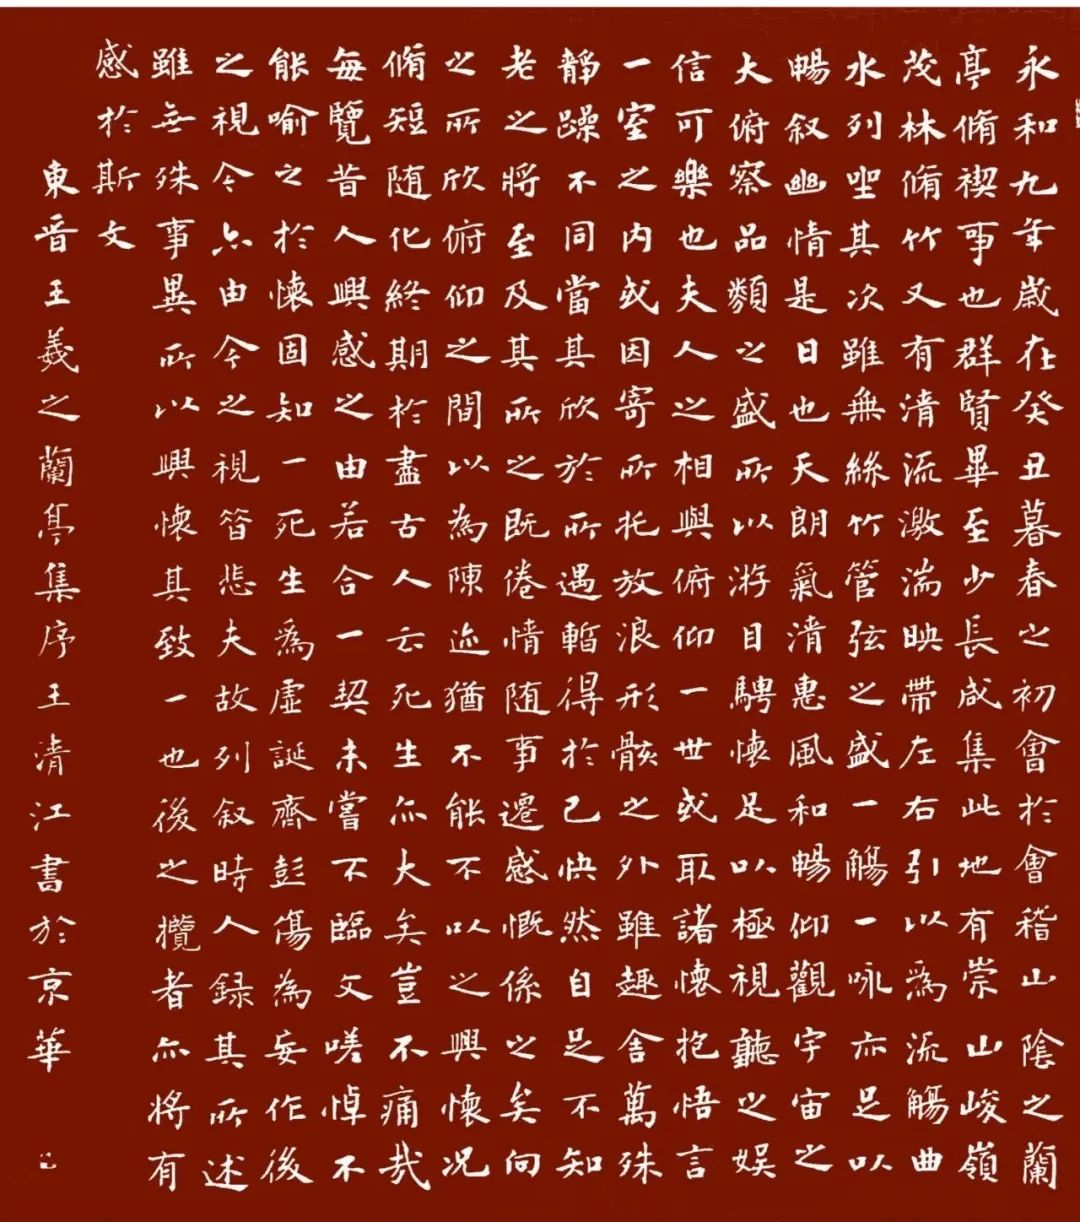 永和九年歲在癸丑暮春之初會於會稽山陰之蘭
亭脩禊事也群賢畢至少長咸集此地有崇山峻嶺
茂林脩竹又有清流激湍映帶左右引以爲流觴曲
水列坐其次雖無絲竹管弦之盛一觴一咏亦足以
暢叙幽情是日也天朗氣清惠風和暢仰觀宇宙之
大俯察品類之盛所以游目騁懷足以極視聽之娛
信可樂也夫人之相與俯仰一世或取諸懷抱悟言
一室之内或因寄所托放浪形骸之外雖趣舍萬殊
靜躁不同當其欣於所遇暫得於己快然自足不知
老之將至及其所之既倦情随事遷感慨係之矣向
之所欣俯仰之間以為陳迹猶不能不以之興懷况
脩短随化終期於盡古人云死生亦大矣豈不痛哉
每覽昔人興感之由若合一契未嘗不臨文嗟悼不
能喻之於懷固知一死生爲虛誕齊彭傷為妄作後
之視今亦由今之視昔悲夫故列叙時人録其所述
雖無殊事異所以興懷其致一也後之攬者亦將有
感於斯文
東晉王羲之蘭亭集序王清江書於京華